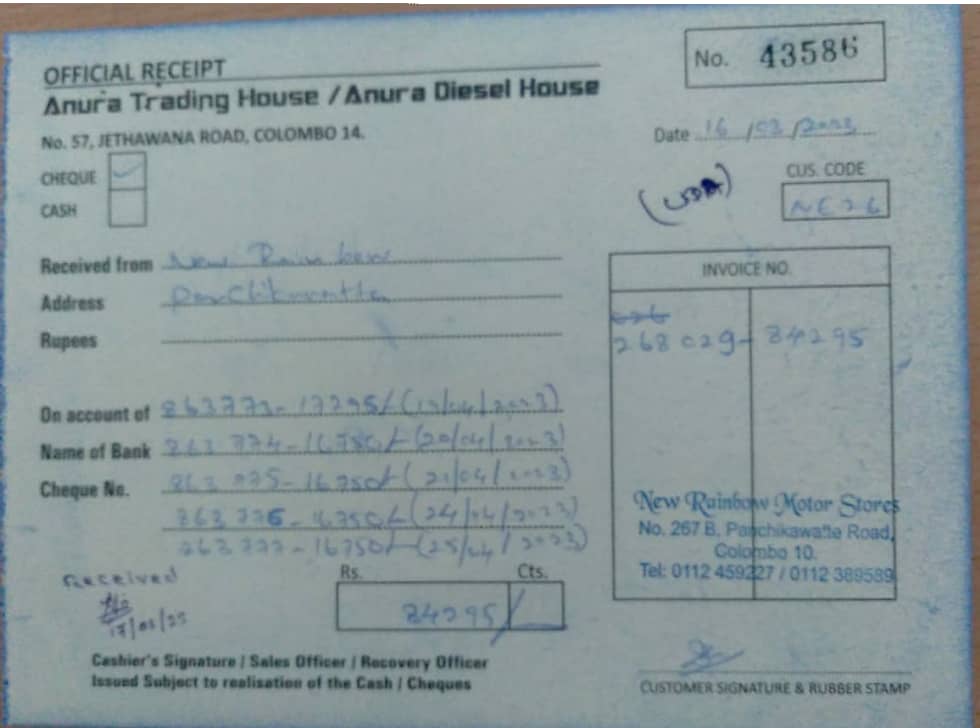 OFFICIAL RECEIPT
Anura Trading House / Anura Diesel House
No. 57, JETHAWANA ROAD, COLOMBO 14.
No. 43586
Date 16/03/2023
CHEQUE
CASH
CUS. CODE
NE26
Received from New Rainbow
Address
Rupees
INVOICE NO.
268029- 84295
On account of 863773- 17295/-
Name of Bank 863774-16750/- (20/04/2023)
Cheque No. 863775-16750/-
863776-16750/- (24/04/2023)
863777-16750/- (25/04/2023)
New Rainbow Motor Stores
No. 267 B, Panchikawatte Road,
Colombo 10.
Tel: 0112 459227 / 0112 389589
Received
Rs. Cts.
84295/
Cashier's Signature / Sales Officer / Recovery Officer
Issued Subject to realisation of the Cash / Cheques
CUSTOMER SIGNATURE & RUBBER STAMP